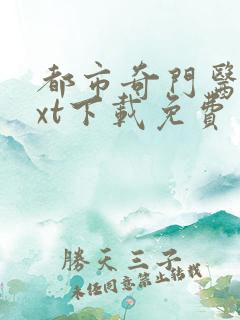 都市奇門醫
xt下載免費
勝天三子
未經同意禁止轉載